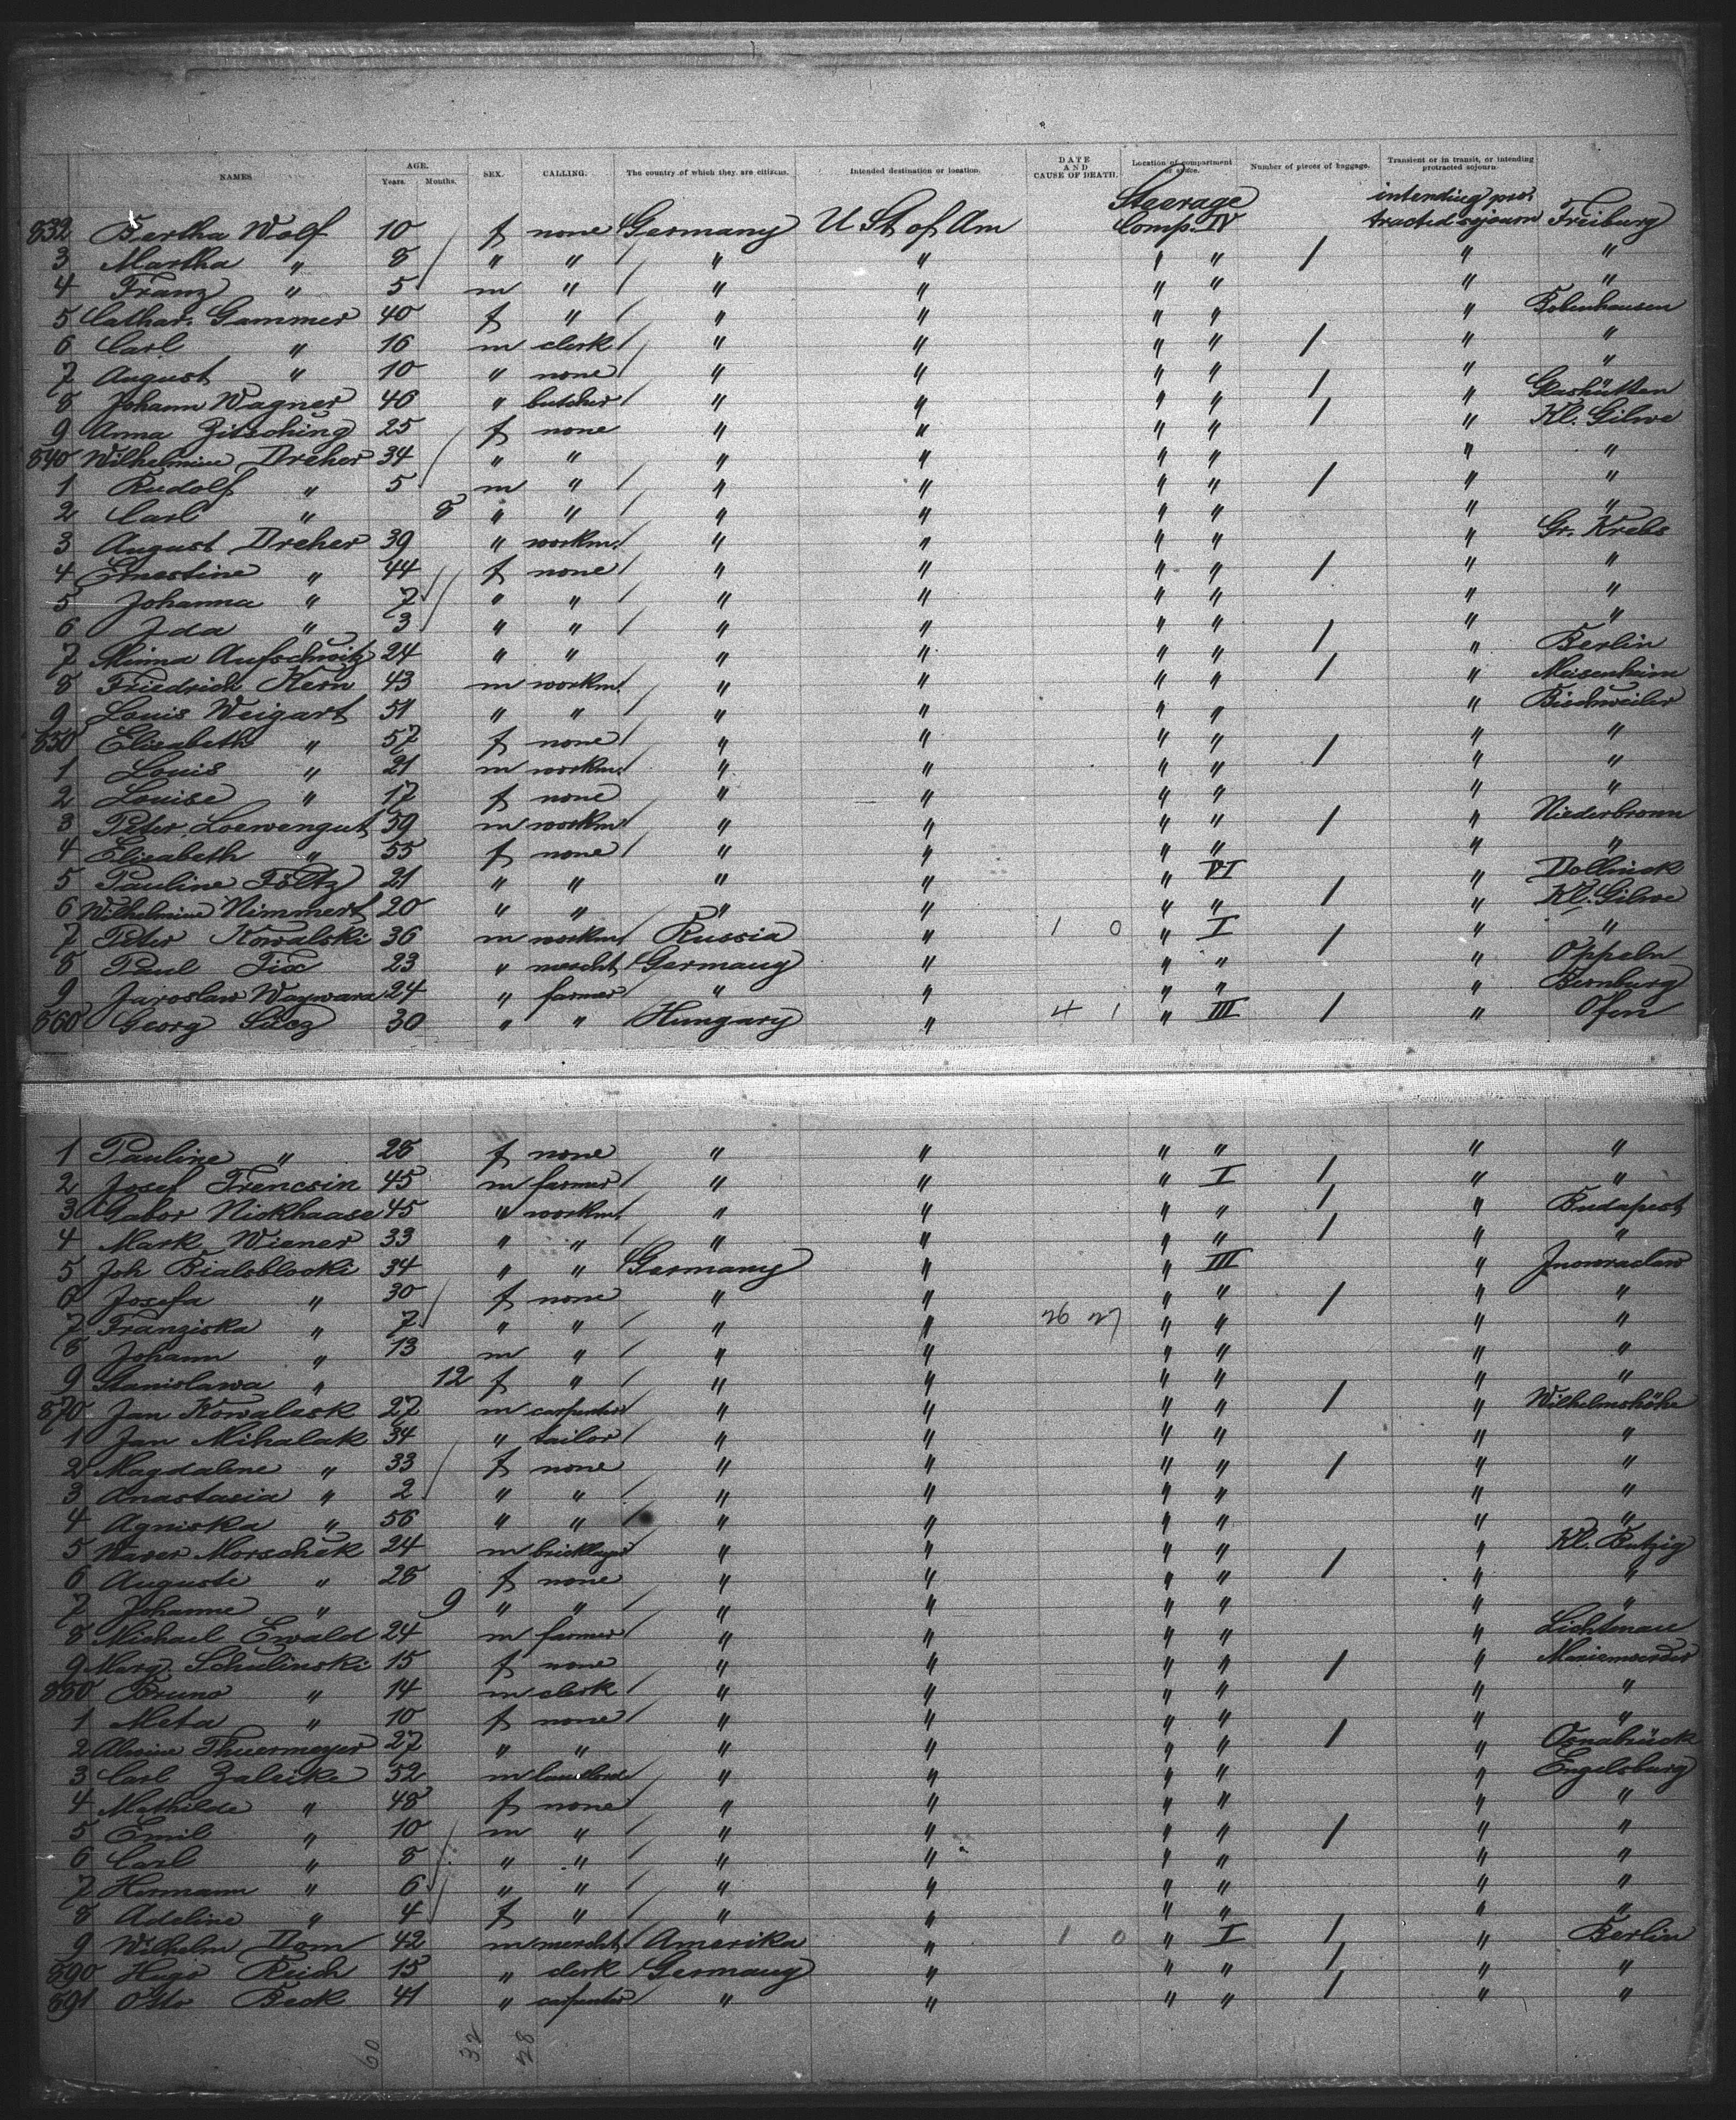 NAMES AGE. Years. Months. SEX. CALLING. The country of which they are citizens. Intended destination or location. DATE AND CAUSE OF DEATH. Location of compartment or space. Number of pieces of baggage. Transient or in transit, or intending protracted sojourn.
Steerage intending pro.
832 Bertha Wolf 10 f none Germany U St of Am Comp. IV tracted sojourn Freiburg
3 Martha " 8 / " " / " " " " / " "
4 Franz " 5 m " / " " " " " "
5 Cathar. Gammer 40 f " / " " " " " Bobenhausen
6 Carl " 16 m clerk / " " " " / " "
7 August " 10 " none / " " " " " "
8 Johann Wagner 46 " butcher / " " " " / " Glashütten
9 Anna Zitsching 25 f none " " " " / " Kl. Gilwe
840 Wilhelmine Dreher 34 / " " " " " " " "
1 Rudolf " 5 m " / " " " " / " "
2 Carl " 8 " " / " " " " " "
3 August Dreher 39 " workm. " " " " " Gr. Krebs
4 Ernestine " 44 f none / " " " " / " "
5 Johanna " 7 / " " / " " " " " "
6 Ida " 3 / " " / " " " " " "
7 Minna Aufschwitz 24 " " " " " " / " Berlin
8 Friedrich Kern 43 m workm. " " " " / " Meisenheim
9 Louis Weigart 51 " " / " " " " " Bischweiler
850 Elisabeth " 57 f none / " " " " / " "
1 Louis " 21 m workm. " " " " " "
2 Louise " 17 f none " " " " " "
3 Peter Loewengut 59 m workm " " " " / " Niederbronn
4 Elisabeth " 55 f none / " " " " " "
5 Pauline Föltz 21 " " " " " VI " Dollnick
6 Wilhelmine Nimmert 20 " " " " " " / " Kl. Gilwe
7 Peter Kowalski 36 m workm / Russia " 1 0 " I / " "
8 Paul Fix 23 " mercht / Germany " " " " Oppeln
9 Jaroslaw Waywara 24 " farmer / " " " " " Bernburg
860 Georg Sücz 30 " " / Hungary " 4 1 " III / " Ofen
1 Pauline " 28 f none " " " " " "
2 Josef Trencsin 45 m farmer / " " " I / " "
3 Gabor Nickhaase 45 " workm. " " " " / " Budapest
4 Mark Wiener 33 " " / " " " " / " "
5 Joh Bialoblocki 34 " " / Germany " " III " Inowraclaw
6 Josefa " 30 / f none " " " " / " "
7 Franziska " 7 " " / " " 26 27 " " " "
8 Johann " 13 m " / " " " " " "
9 Stanislawa " 12 f " / " " " " " "
870 Jan Kowalask 27 m carpenter " " " " / " Wilhelmshöhe
1 Jan Mihalak 34 " tailor / " " " " " "
2 Magdalene " 33 / f none " " " " / " "
3 Anastasia " 2 " " / " " " " " "
4 Agniska " 56 " " / " " " " " "
5 Waver Morschek 24 m bricklayer " " " " " Kl. Butzig
6 Auguste " 28 f none " " " " / " "
7 Johanne " 9 " " / " " " " " "
8 Michael Ewald 24 m farmer / " " " " " Lichtenau
9 Marg. Schulinski 15 f none " " " " / " Marienwerder
880 Bruno " 14 m clerk / " " " " " "
1 Meta " 10 f none / " " " " " "
2 Alwine Thuermeyer 27 " " " " " " / " Osnabrück
3 Carl Zalicke 52 m landlord " " " " " Engelsburg
4 Mathilde " 48 f none / " " " " " "
5 Emil " 10 m " / " " " " / " "
6 Carl " 8 / " " / " " " " " "
7 Hermann " 6 " " / " " " " " "
8 Adeline " 4 / f " / " " " " " "
9 Wilhelm Dom 42 m mercht / Amerika " 1 0 " I / " Berlin
890 Hugo Reich 15 " clerk / Germany " " " / " "
891 Otto Beck 41 " carpenter " " " " / " "
60 32 28